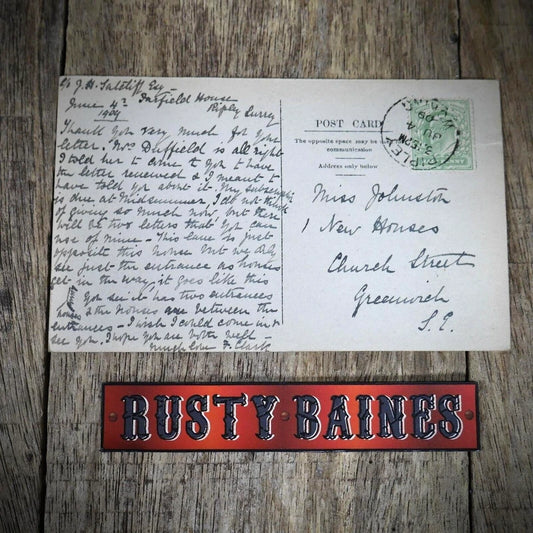 c/o J. H. Sutcliff Esq
Durfield House
June 4th Riply Surrey
1909
Thank you very much for your
letter. Mrs Duffield is all right
I told her to come to you to have
the letter renewed & I meant to
have told you about it. My subscription
is due at Midsummer, I do not think
of giving so much now, but there
will be two letters that you can
use of mine - This lane is just
opposite this house but we only
see just the entrance as houses
get in the way, it goes like this
You see it has two entrances
& the houses are between the
entrances - I wish I could come in &
see you. I hope you are both well -
much love F. Clark
POST CARD
The opposite space may be used
communication
Address only below
Miss Johnston
1 New Houses
Church Street
Greenwich
S.E.
RIPLEY
3.15PM
JU 4
09
RUSTY BAINES